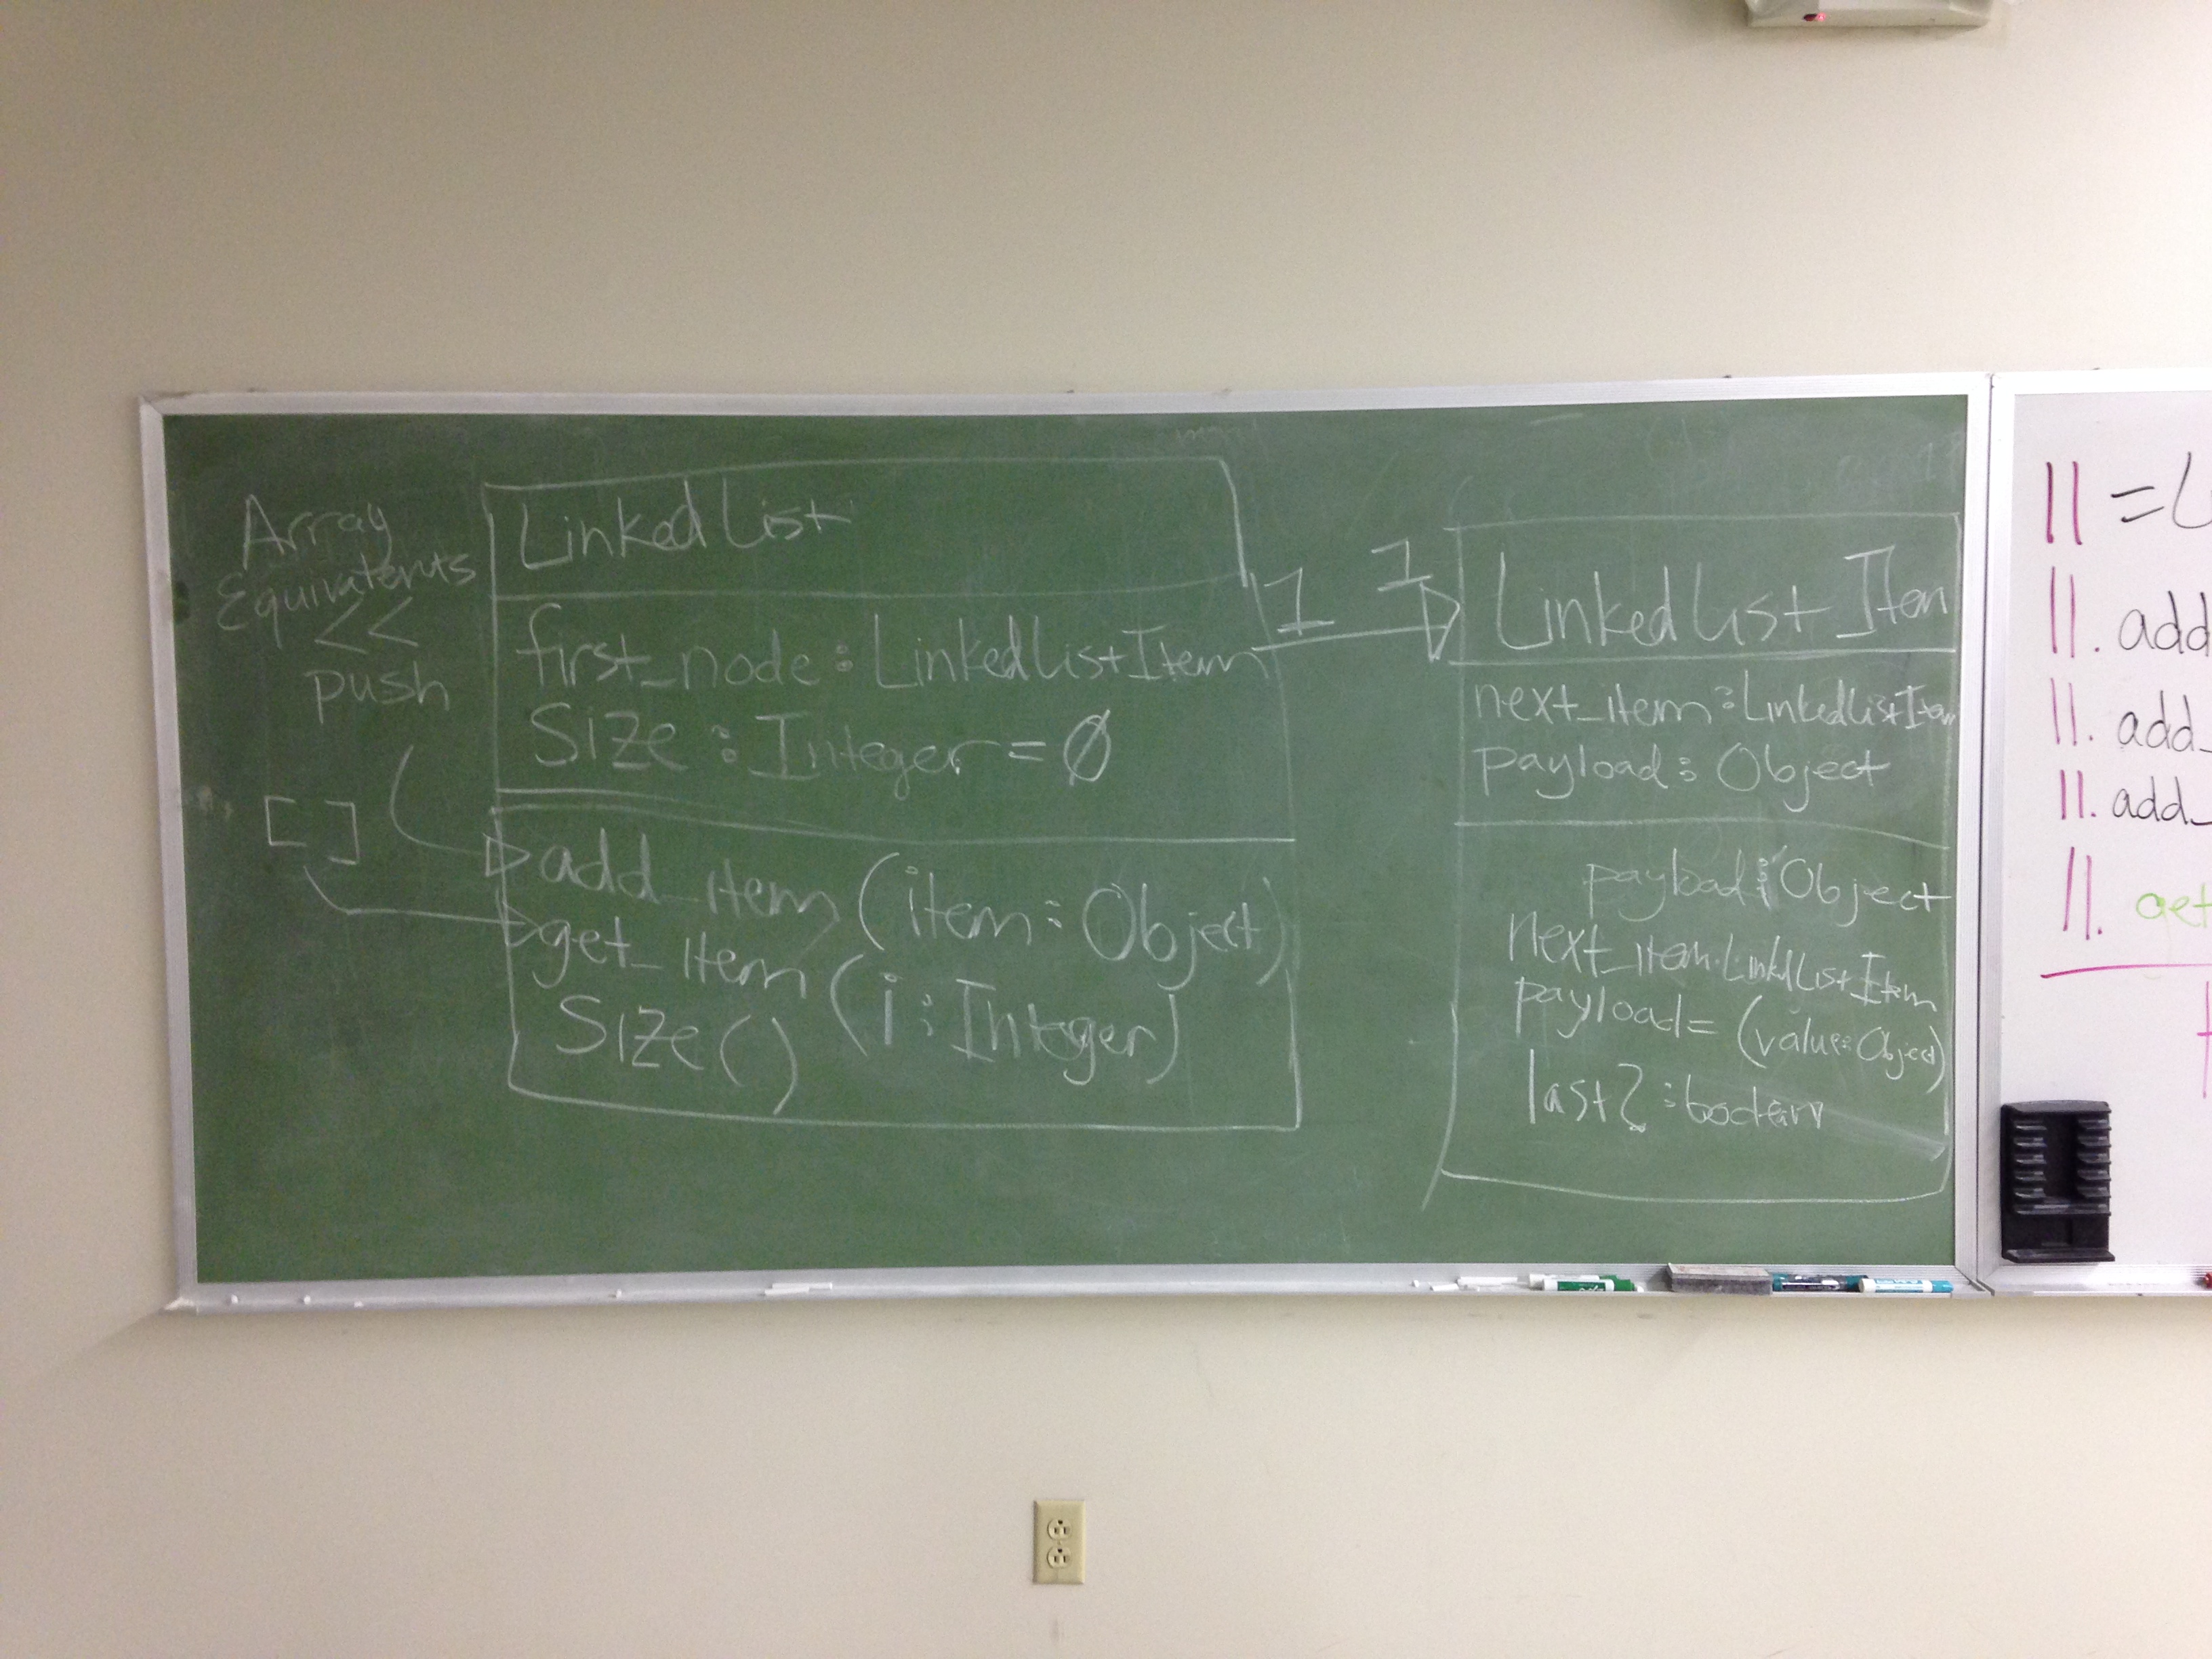 Array
Equivalents
<<
push
[ ]
LinkedList
first_node : LinkedListItem
Size : Integer = Ø
add_item (item : Object)
get_item (i : Integer)
Size()
1 1
LinkedList Item
next_item : LinkedListItem
payload : Object
payload : Object
next_item : LinkedListItem
payload= (value : Object)
last? : boolean
ll = L
ll. add
ll. add_
ll. add_
ll. get